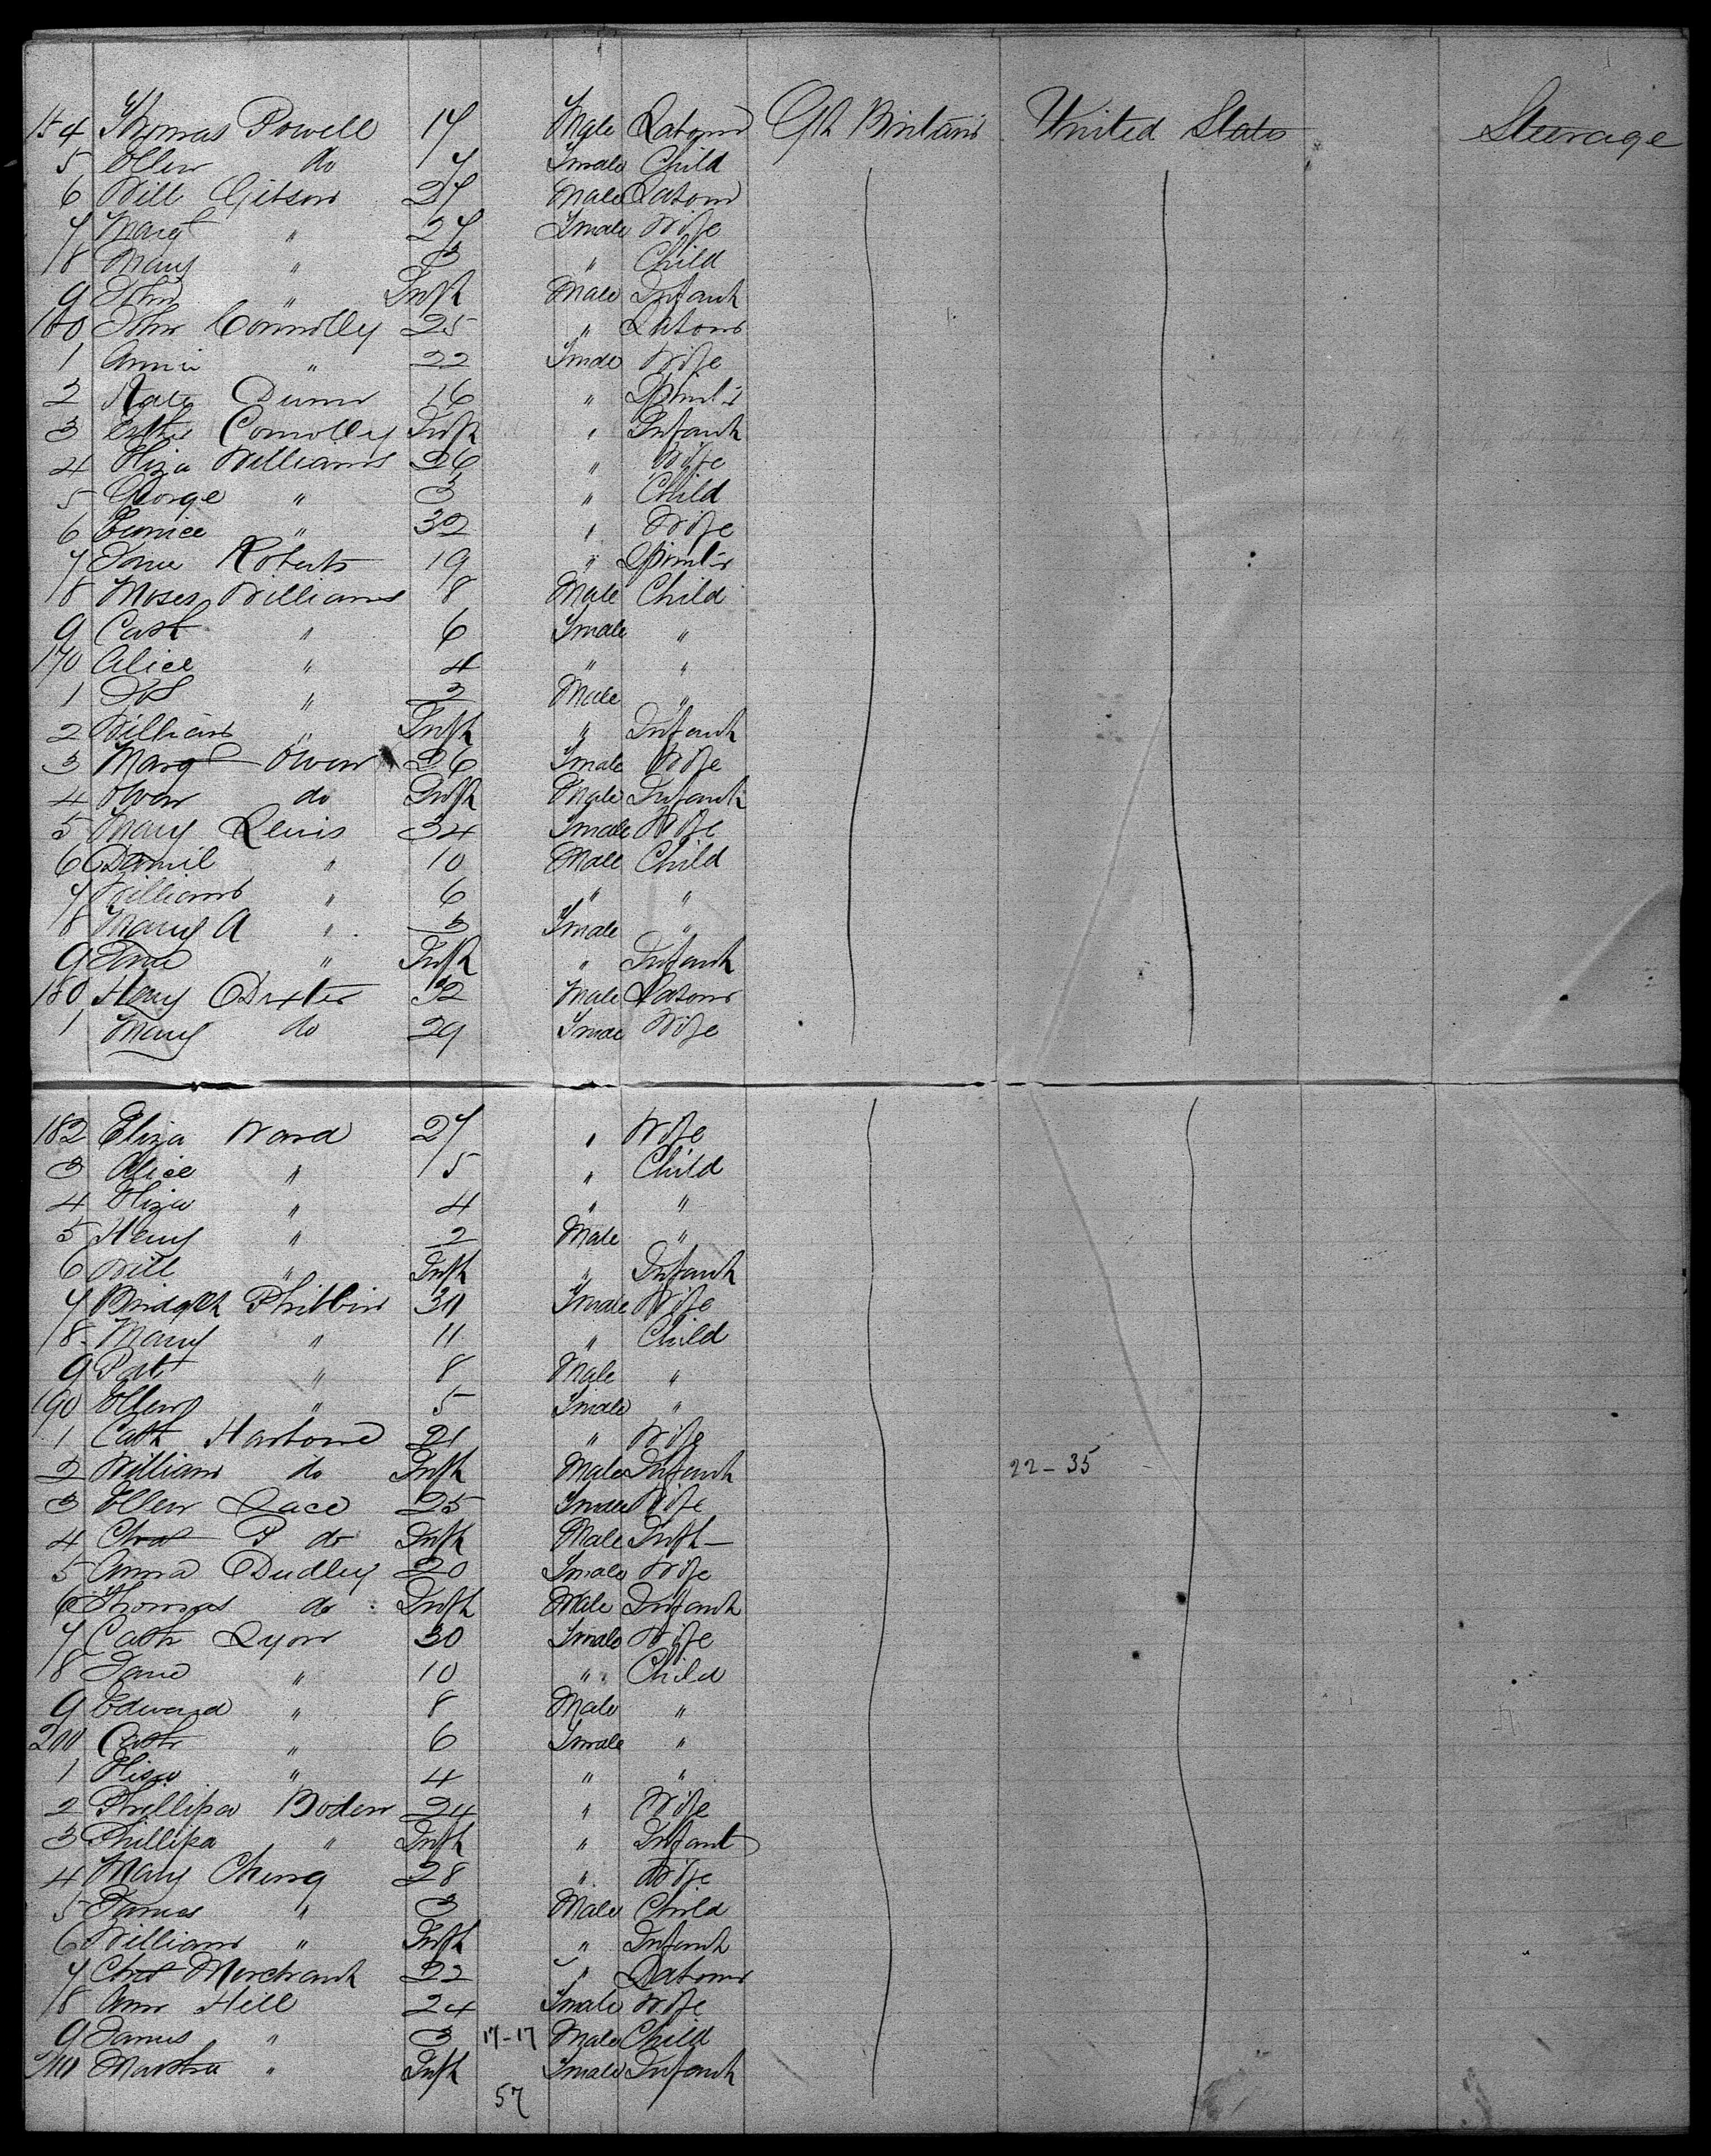 154 Thomas Powell 17 Male Labour Gt Britain United States Steerage
5 Ellen do 7 Fmale Child
6 Will Gibson 27 Male Labour
7 Margt " 27 Fmale Wife
8 Mary " 3 " Child
9 John " Inft Male Infant
160 John Connolly 25 " Labour
1 Annie " 22 Fmale Wife
2 Kate Dunn 16 " Spinstr
3 Esther Connolly Inft " Infant
4 Eliza Williams 26 " Wife
5 George " 3 " Child
6 Eunice " 32 " Wife
7 Jane Roberts 19 " Spinstr
8 Moses Williams 8 Male Child
9 Cath " 6 Fmale "
170 Alice " 4 " "
1 " 2 Male "
2 William " Inft " Infant
3 Margt Owen 26 Fmale Wife
4 Owen do Inft Male Infant
5 Mary Lewis 34 Fmale Wife
6 Daniel " 10 Male Child
7 William " 6 " "
8 Mary A " 3 Fmale "
9 Jane " Inft " Infant
180 Henry Dexter 32 Male Labour
1 Mary do 29 Fmale Wife
182 Eliza Ward 27 " Wife
3 Alice " 5 " Child
4 Eliza " 4 " "
5 Henry " 2 Male "
6 Will " Inft " Infant
7 Bridget Philbin 30 Fmale Wife
8 Mary " 11 " Child
9 Patt " 8 Male "
190 Ellen " 5 Fmale "
1 Cath 21 " Wife
2 William do Inft Male Infant 22-35
3 Ellen Lace 25 Fmale Wife
4 Chas P do Inft Male Inft
5 Anna Dudley 20 Fmale Wife
6 Thomas do Inft Male Infant
7 Cath Lyon 30 Fmale Wife
8 Jane " 10 " Child
9 Edward " 8 Male "
200 Cath " 6 Fmale "
1 Eliza " 4 " "
2 Phillipa Boden 24 " Wife
3 Phillipa " Inft " Infant
4 Mary 28 " Wife
5 James " 3 Male Child
6 William " Inft " Infant
7 Merchant 22 " Labour
8 Ann Hill 24 Fmale Wife
9 James " 3 17-17 Male Child
210 Martha " Inft Fmale Infant
57